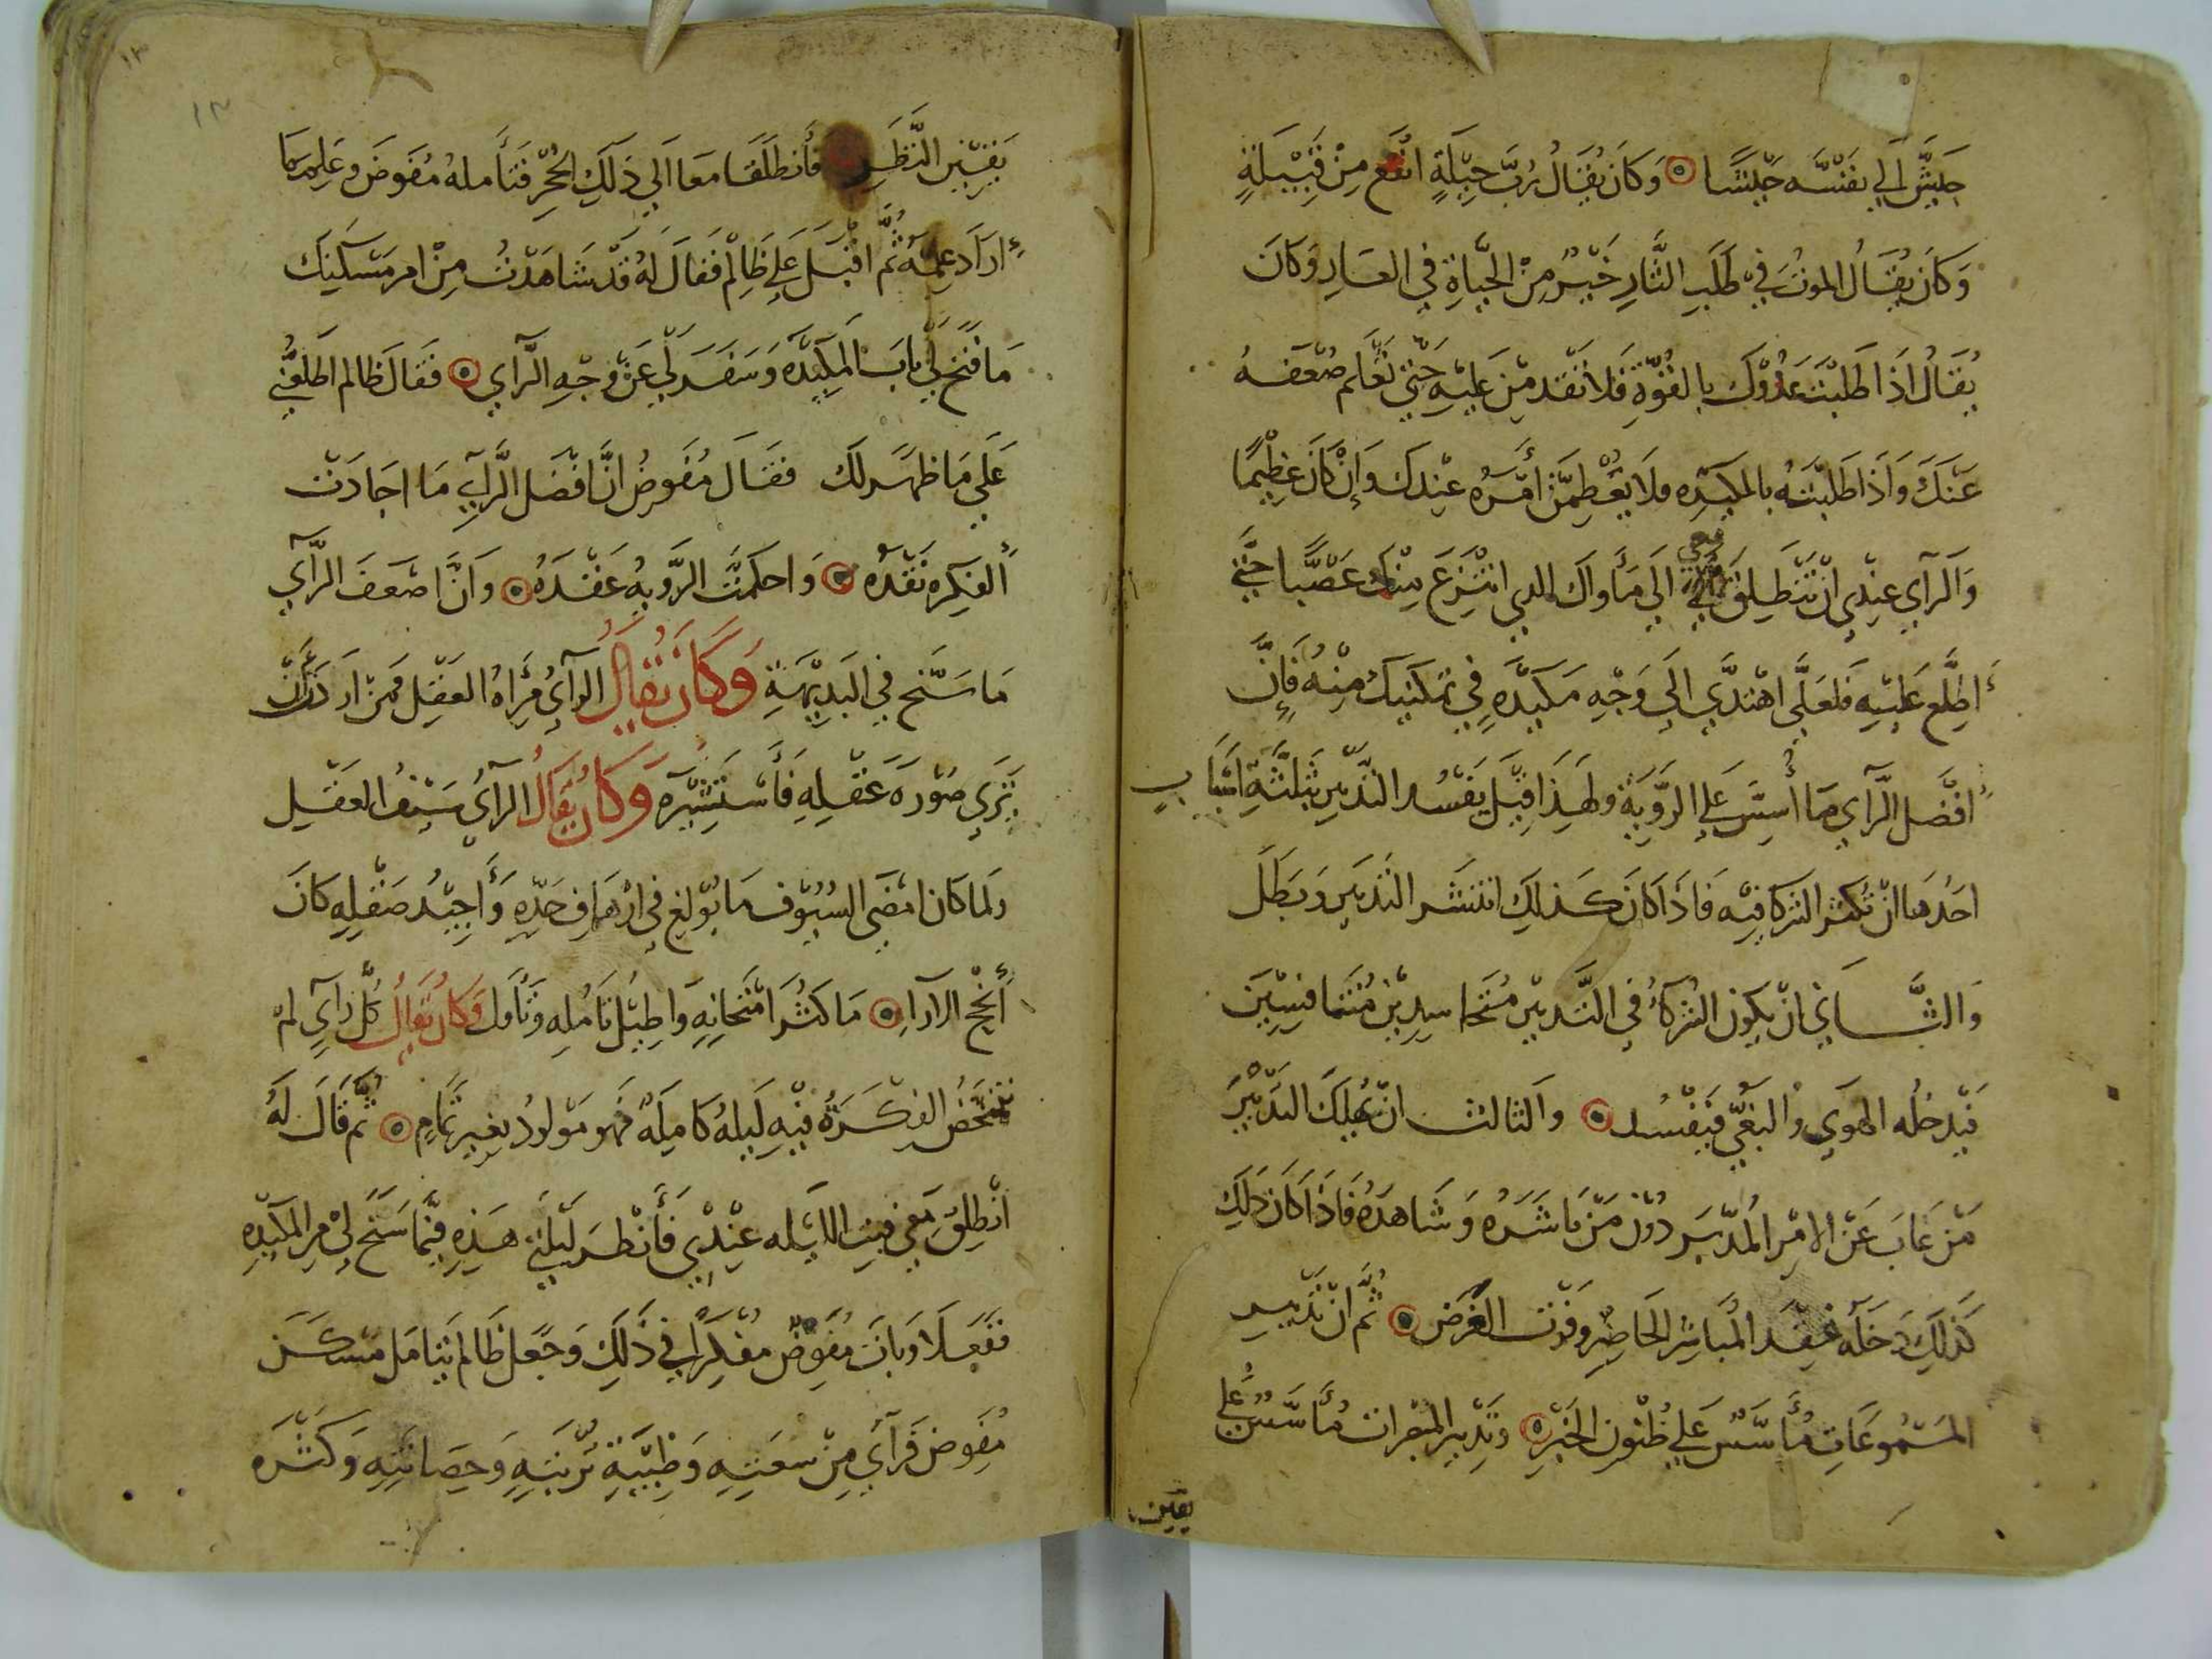 جَلَبْتُ إلي نفسه جَيْشًا وَكَانَ يُقَالُ رُبَّ حِيْلَةٍ انفع مِنْ قَبِيْلَةٍ
وَكَانَ يُقَالُ الموتُ فِي طَلَبِ الثَّارِ خَيْرٌ مِنَ الحَيَاةِ فِي العَارِ وَكَانَ
يُقَالُ اذَا طَلَبْتَ عَدُوَّكَ بالقُوَّةِ فَلَا تَقْدمَنَّ عَلَيْهِ حَتّي تَعْلَم ضُعْفَهُ
عَنْكَ وَاذَا طَلَبْتَهُ بالمكيدَه فلَا يَعْظِمَنَّ أَمْرُهُ عِنْدكَ وَإنْ كَانَ عَظِيْمًا
وَالرَآي عِنْدِي انْ تَنْطَلِقَ معي الَي مَأْوَاك الدي انتُزِعَ مِنْك غَصْبًا حَتّي
أَطِلِّعَ عَلَيْهِ فَلَعَلَّي اهْتَدَّي الَي وَجْهِ مَكيدَّهٍ فِي تمكنيك مِنْهُ فَإِنَّ
افْضَل الرَّآي مَا أُسِسَّ عَلَي الرَّوِيَةِ ولهَذَا قِيْلَ يَفْسُد التَّدْبِير بِثَلثَةِ اَسْبَاب
احَدُهَا انْ تُكثر الشركا فيْه فَاذَا كَانَ كَذلِكَ انتَشَر التَدْبَير وَبَطَلَ
وَالثَّانِي انْ يَكُونَ الشُرَكَاءُ فِي التَّدبيْر مُتَحَاسِدِيْنَ مُتَنَافِسِيْنَ
فَيْدخُلُه الهَوَي وُالبَغْيُّ فَيَفْسُد والثالث انْ يَمْلِكَ التَدْبِيْرَ
مَنْ غَابَ عَنْ الامْرِ المُدبَّر دُوْنَ مَنْ بَاشَرَهُ وَشَاهَدَهُ فَاذَا كَانَ ذَلِكَ
كَذلِكَ دَخَلَهُ حِقْد المُبَاشِرِ الحَاضِرِ وَفَوْت الغَرَض ثُمَّ انْ تَدْبِيرِ
المَسْمُوعَاتِ مُأسَّسٌ عَلَي ظُنُونِ الخَبَرِ وَتَدْبِير المبصرات مُأَسَّسٌ عَلَي
يقين
١٣
يَقِيْنِ النَّظَرِ فَأنطَلَقَا مَعَا اَلَي ذَلَكَ الحُجْرِ فَتَأَمله مُفَوض وَعَلِمَ مَا
ارَادَ عِلْمَهُ ثُمَّ اقْبَلَ عَلَي ظَالِمْ فَقَالَ لهُ قَدْ شَاهَدْتُ مِنْ امر مَسْكَنِكَ
مَا فَتَح لِي بابَ المكيدَّه وَسَفَرَ لي عَنْ وَجْهِ الرَّآي فَقَالَ ظَالم اَطلعْنِي
عَلَي مَا ظهَر لَك فقَالَ مُفَوضُ انَّ افْضَل الرَّاي مَا اجَادَتْ
الفِكره نقْدَهُ وَاحكَمَتْ الرَّوِيهُ عَقْدَهُ وَانَّ اضعَفَ الرَّآي
مَا سَنَح فِي البَدِيْهَةِ وَكَانَ يُقَالُ الرَآيُ مِرَاهُ العَقْلِ فَمَنْ ارَدتَّ أَنْ
تَرَي صُوْرَهَ عَقْلِهِ فَأَسْتَشِيْرَه وَكَانَ يُقَالُ الرَآيُ سَيْفُ العَقْلِ
وَلما كَان امضَي السُيُوْف مَا بُوْلِغ فِي ارْهَافِ حَدِّهِ وَأُجِيْدُ صَقْلِهِ كَانَ
أنْجح الارآءِ مَا كَثُرَ امْتِحَانِهِ وَاطِيْلُ تَأَمُلِهِ وَتُاوّل وَكَانَ يُقَالُ كُلّ رَايٍ لمْ
تتمخَضُ الفِكْرَهُ فِيْهِ لَيلهُ كَامِلَهُ فَهو مَوْلودُ بغير تمَامِ ثُمَّ قَالَ لَهُ
انْطلِقْ مَعِي فبِت اللَّيْله عِنْدِي فَأَنْظرَ لَيْلَتِي هَذِهِ فِيْمَا سَنَح لي مِن المَكِيْدهِ
ففَعَلَا وَبَاتَ مُفَوضٌ مُفكِرًا فِي ذَلكَ وَجَعل ظَالمَ يتَامَل مَسْكَنَ
مُفَوض فَرَآي مِنْ سَعَتِهِ وَطِيْبَهِ تُرْبَتِهِ وَحصَانَتِهِ وَكَثْرَه